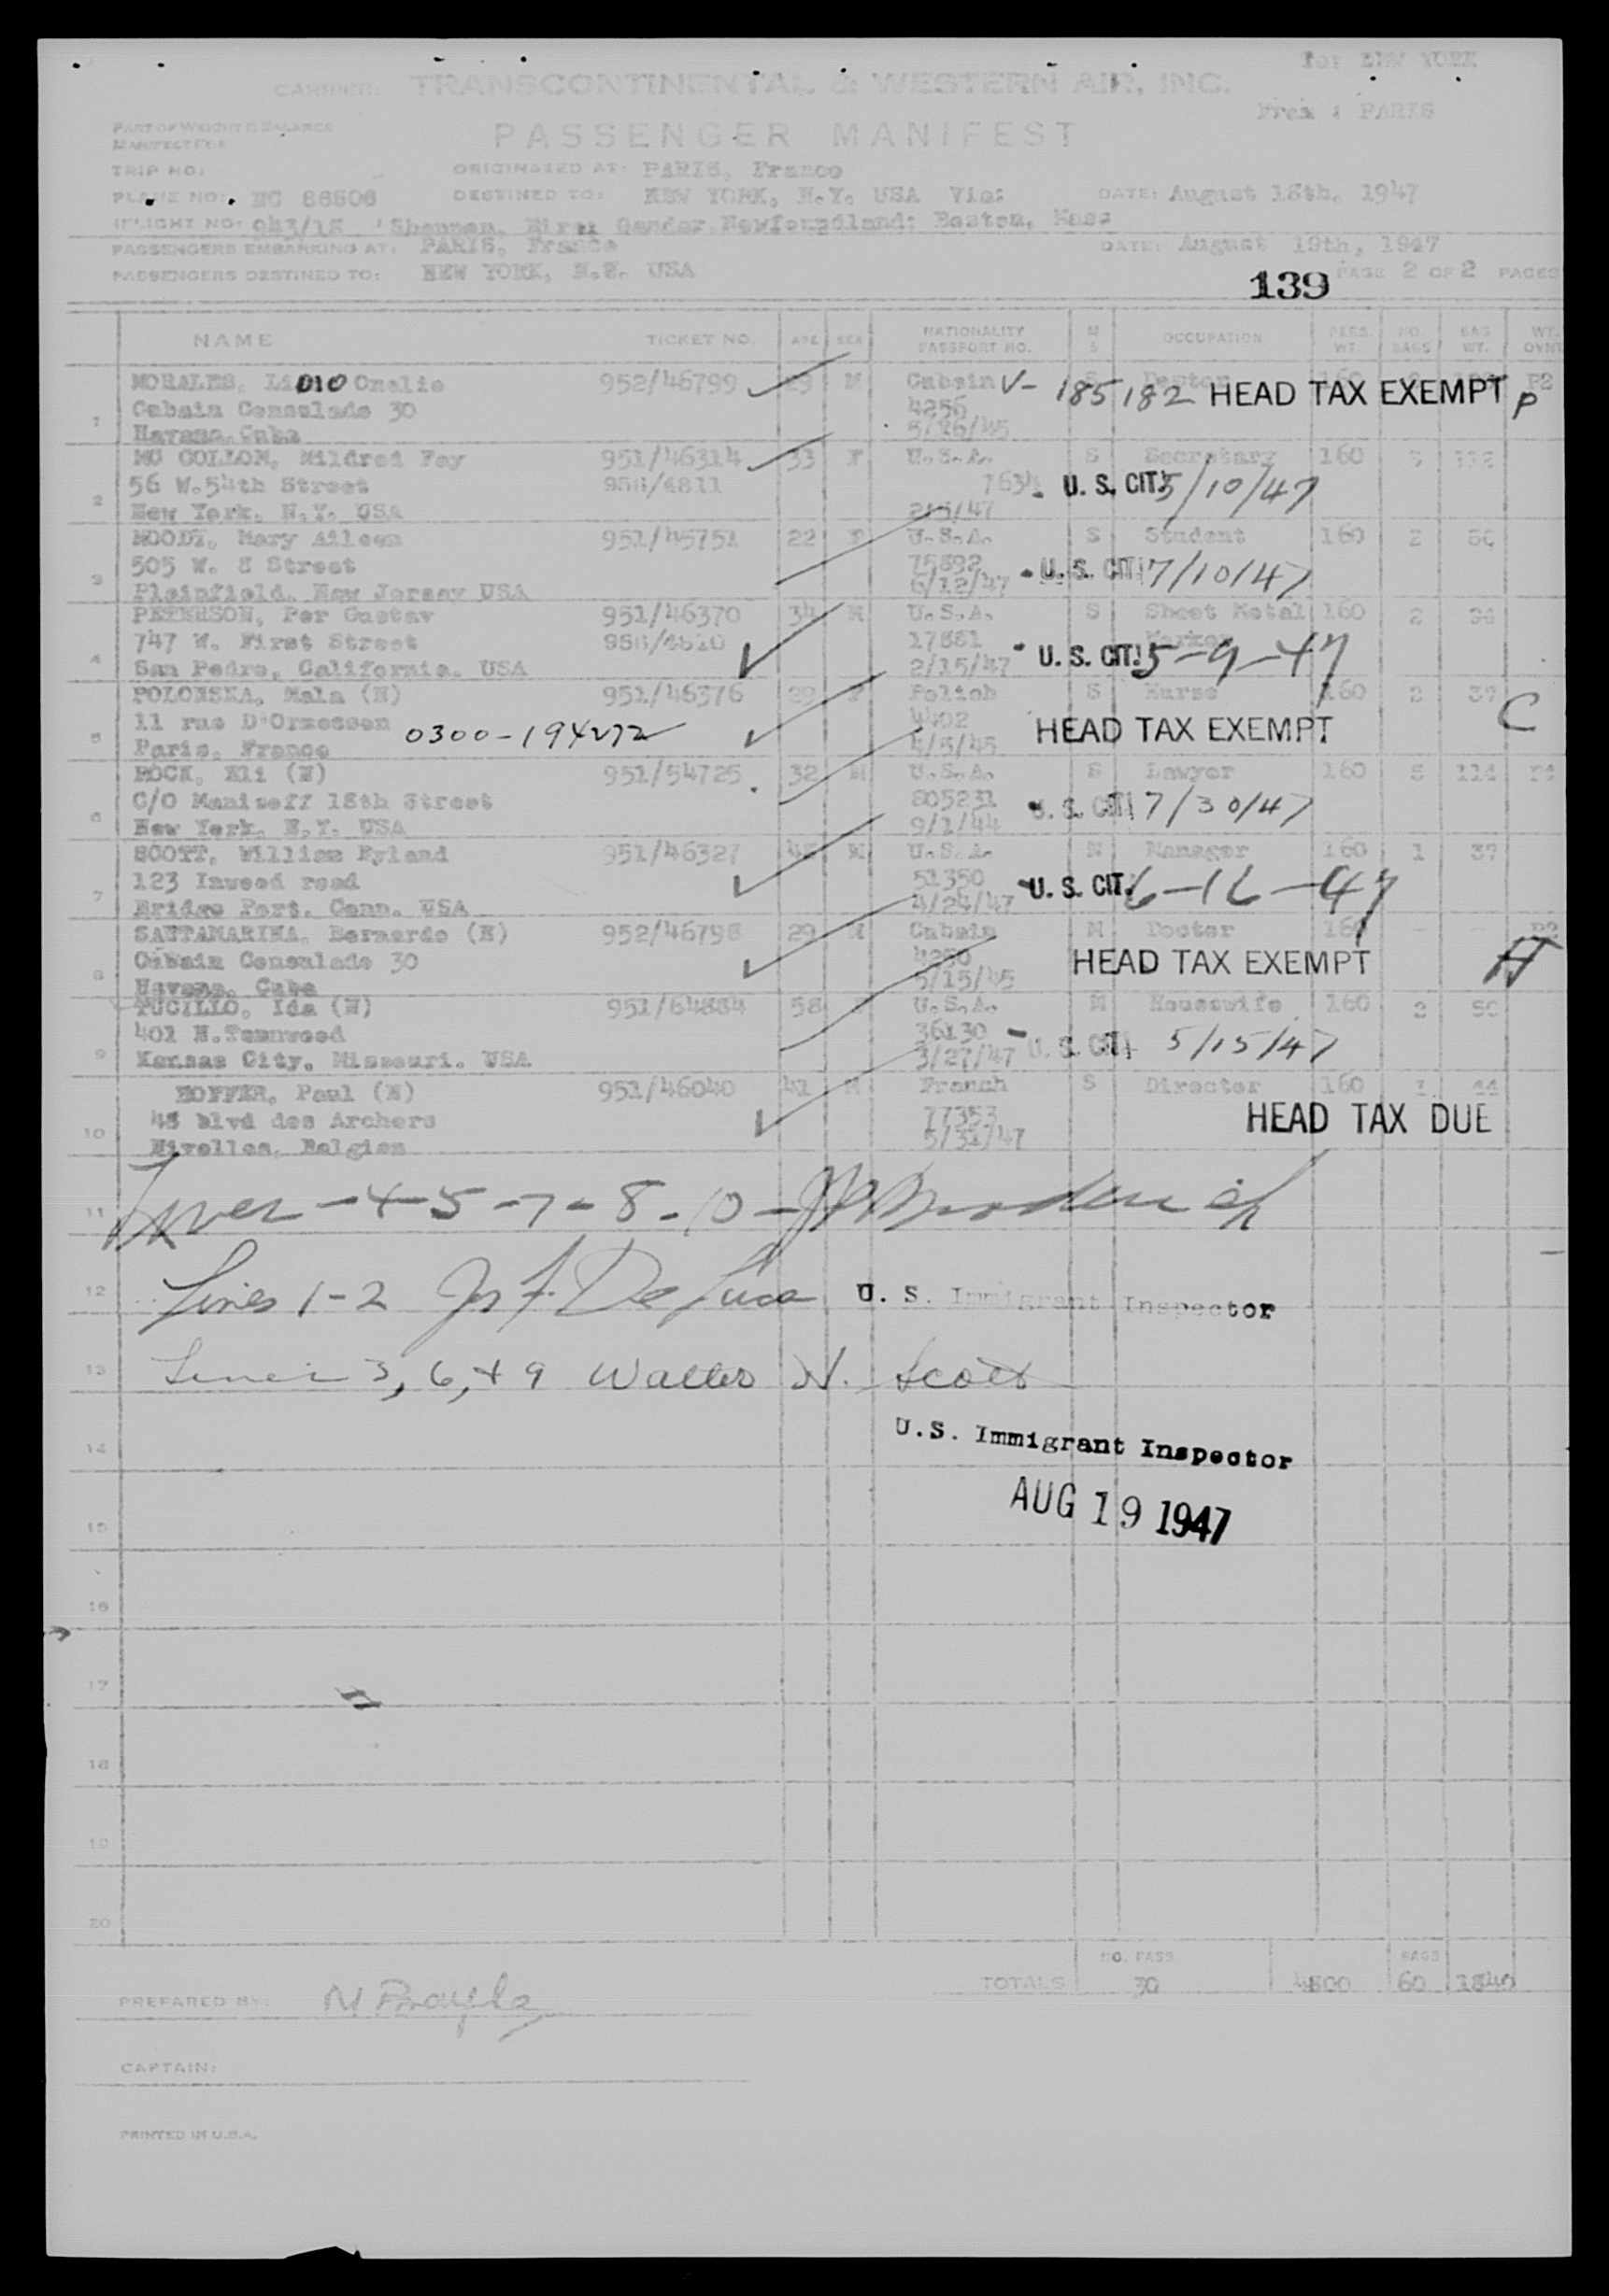 for NEW YORK
CARRIER: TRANSCONTINENTAL & WESTERN AIR, INC.
From : PARIS
PART OF WEIGHT & BALANCE
MANIFEST FOR
PASSENGER MANIFEST
TRIP NO: ORIGINATED AT: PARIS, France
PLANE NO: NC 86506 DESTINED TO: NEW YORK, N.Y. USA Via: DATE: August 18th, 1947
FLIGHT NO: 943/18 Shannon, Gander Newfoundland; Boston, Mass
PASSENGERS EMBARKING AT: PARIS, France DATE: August 19th, 1947
PASSENGERS DESTINED TO: NEW YORK, N.Y. USA 139 PAGE 2 OF 2 PAGES
NAME TICKET NO. AGE SEX NATIONALITY PASSPORT NO. M S OCCUPATION PERS. WT. NO. BAGS BAG WT. WT.
MORALES, Onelio 952/46799 29 M Cubain V- 185182 HEAD TAX EXEMPT P
1 Cubain Consulado 30 4256
Havana, Cuba 5/16/45
MC COLLOM, Mildred Fay 951/46314 33 F U.S.A. S Secretary 160
2 56 W. 54th Street 956/4811 U. S. CIT. 5/10/47
New York, N.Y. USA
MOODY, Mary Aileen 951/45751 22 F U.S.A. S Student 160 2
3 505 W. 8 Street 75892 U. S. CIT. 7/10/47
Plainfield, New Jersey USA 6/12/47
PETERSON, Per Gustav 951/46370 34 M U.S.A. S Sheet Metal 160 2
4 747 W. First Street 956/4810 17881 Worker U. S. CIT. 5-9-47
San Pedro, California. USA 2/15/47
POLONSKA, Mala (N) 951/46376 29 F Polish S Nurse 160 2 37
5 11 rue D'Ormesson 0300-194272 4402 HEAD TAX EXEMPT C
Paris, France 4/5/45
ROCK, Eli (N) 951/54725 32 M U.S.A. S Lawyer 160 5 114
6 C/O Maniseff 18th Street 805231 U. S. CIT. 7/30/47
New York, N.Y. USA 9/1/44
SCOTT, William Ryland 951/46327 M U.S.A. M Manager 160 1 37
7 123 Inwood road 51350 U. S. CIT. 6-16-47
Bridge Port, Conn. USA 4/24/47
SANTAMARINA, Bernardo (N) 952/46798 29 M Cubain M Doctor 160 - -
8 Cubain Consulado 30 HEAD TAX EXEMPT H
Havana, Cuba 5/15/45
TUCILLO, Ida (N) 951/64884 58 U.S.A. M Housewife 160 2
9 401 N. 36130 U. S. CIT. 5/15/47
Kansas City, Missouri. USA 3/27/47
HOFFER, Paul (N) 951/46040 41 M French S Director 160 1 44
10 48 blvd des Archers 77353 HEAD TAX DUE
Nivelles, Belgien 5/31/47
11 4-5-7-8-10
12 Lines 1-2 Jos F. DeLuca U. S. Immigrant Inspector
13 Lines 3, 6, + 9 Walter N. Scott
U.S. Immigrant Inspector
14
AUG 19 1947
15
16
17
18
19
20
NO. PASS BAGS
TOTALS 30 4800 60 1840
PREPARED BY:
CAPTAIN:
PRINTED IN U.S.A.